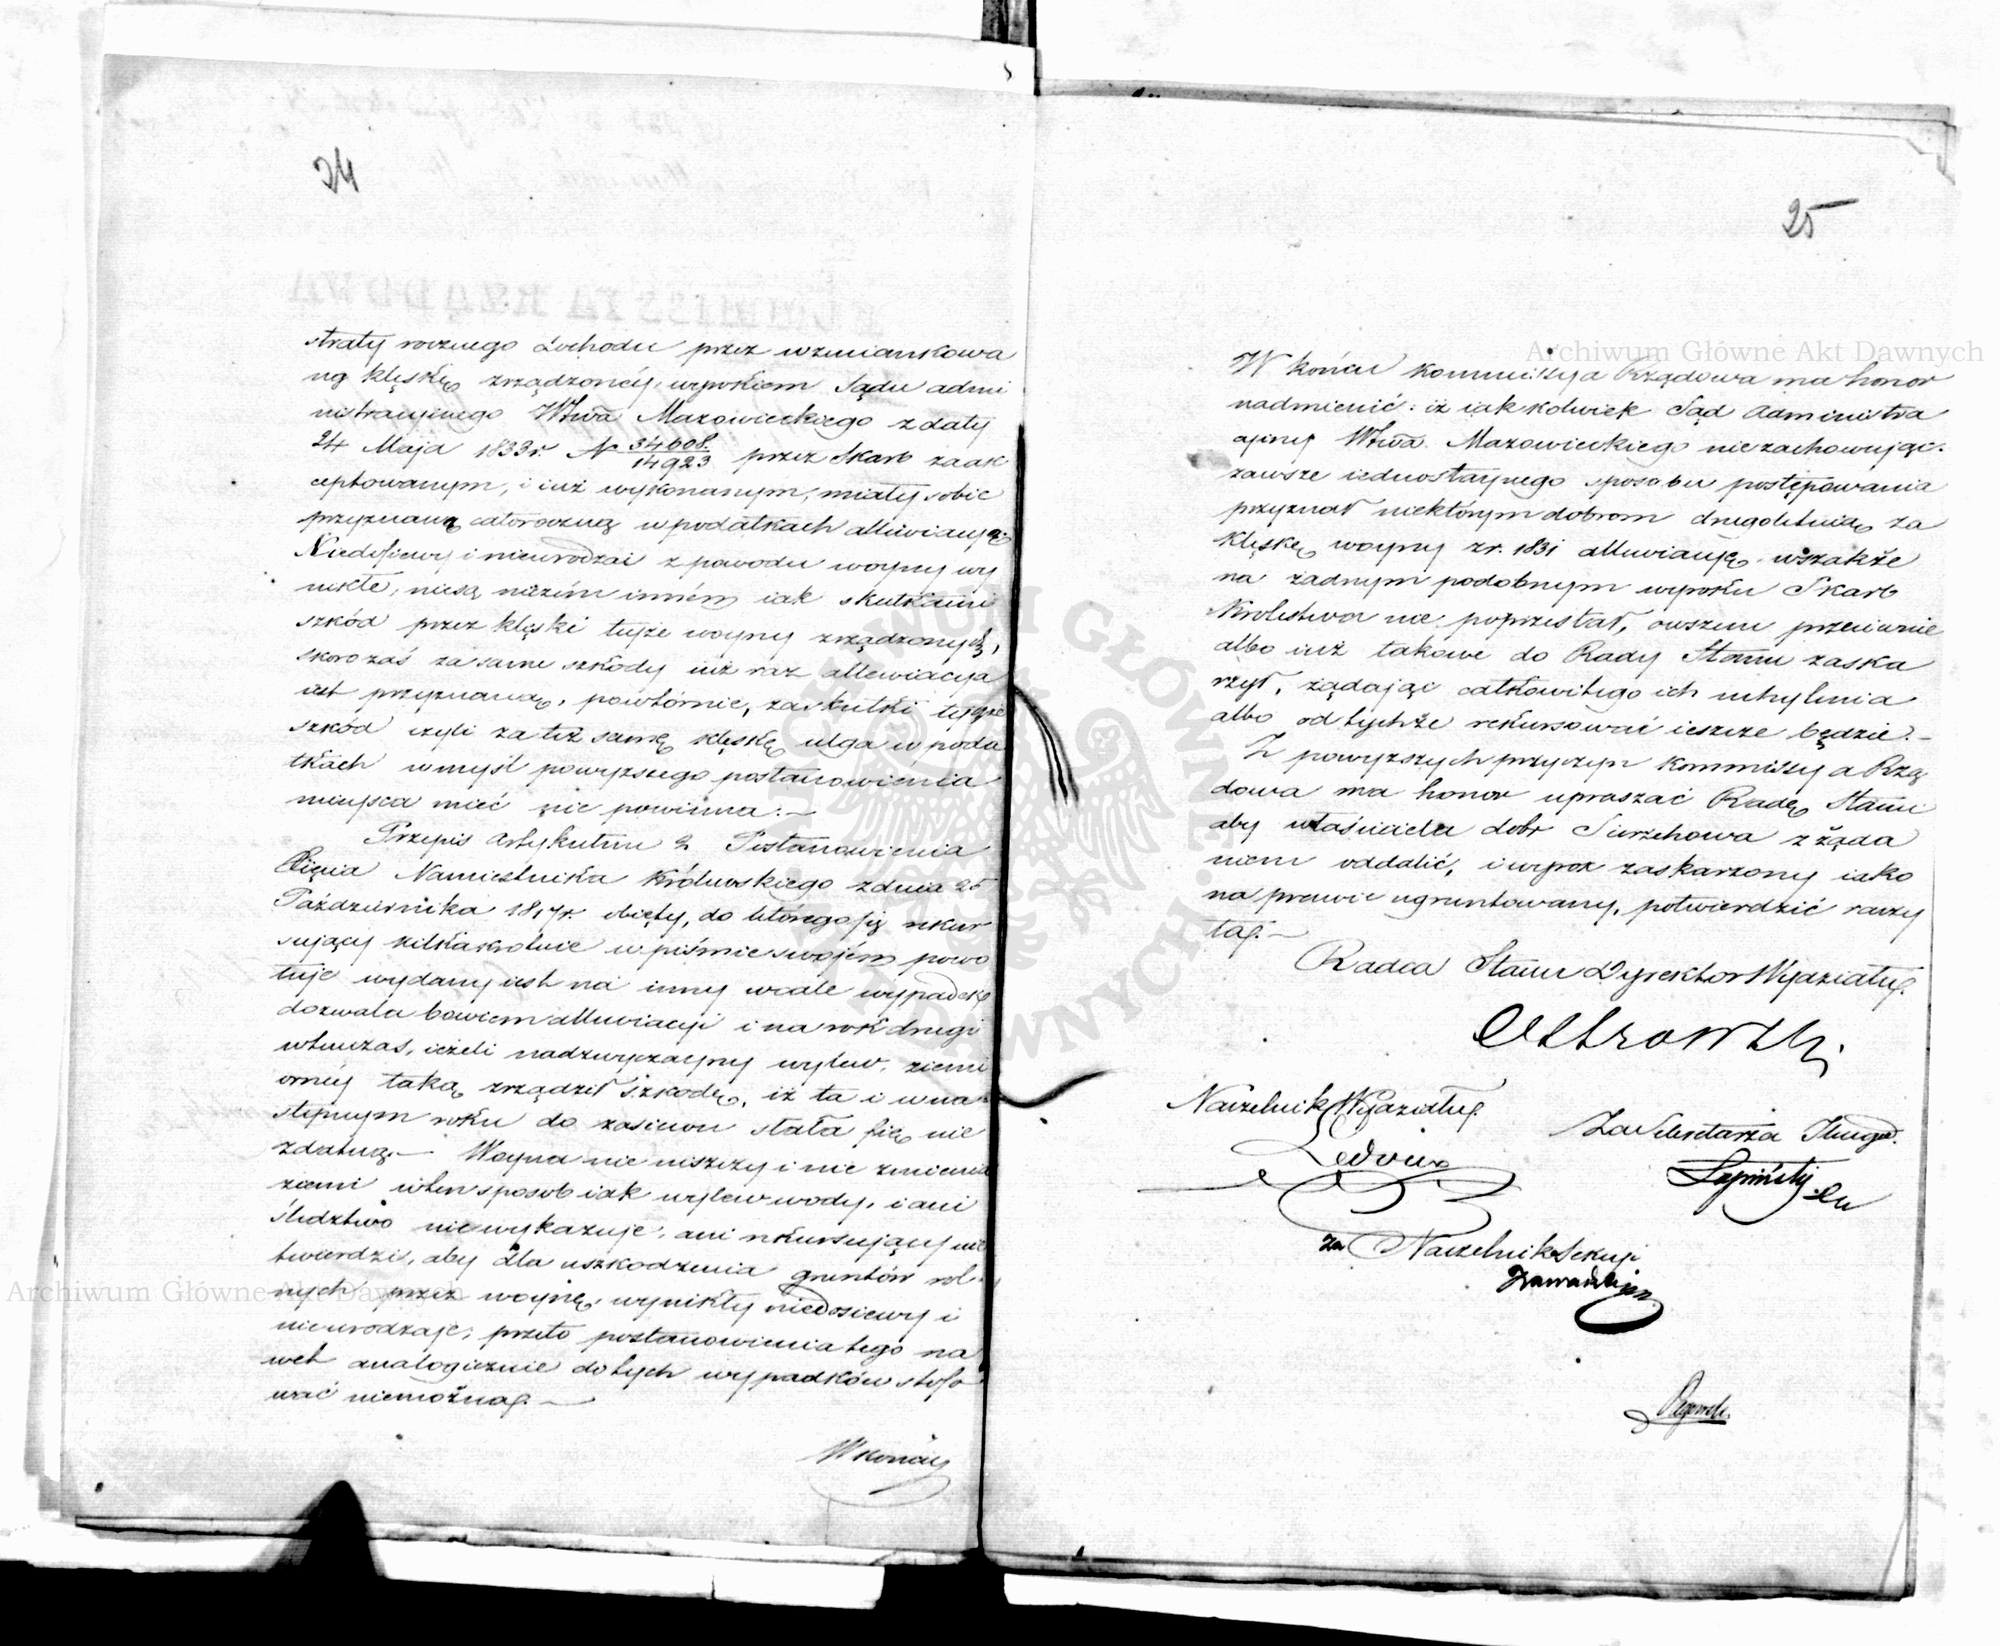 24
straty rocznego dochodu przez wzmiankowa
ną klęskę zrządzonéy, wyrokiem Sądu admi
nistracyinego Wtwa Mazowieckiego z daty
24 Maja 1833 r. N 34608/14923 przez Skarb zaak
ceptowanym, i iuż wykonanym, miały sobie
przyznaną całoroczną w podatkach allewiacyą.
Niedosiewy i nieurodzai z powodu woyny wy
nikłe, niesą niczém inném iak skutkami
szkód przez klęski teyże woyny zrządzonych,
skoro zaś za same szkody iuż raz allewiacya
iest przyznaną, powtórnie, za skutki tychże
szkód czyli za też samę klęskę ulga w poda
tkach wmyśl powyższego postanowienia
mieysca mieć nie powinna.—
Przepis Artykułu 2 Postanowienia
Xięcia Namiestnika Królewskiego z dnia 25
Października 1817 r. obięty, do którego się rekur
sujący kilkakrotnie w piśmie swojém powo
łuje wydany iest na inny wcale wypadek
dozwala bowiem alluwiacyi i na rok drugi
wówczas, ieżeli nadzwyczayny wylew, ziemi
ornéy taką zrządził szkodę, iż ta i w na
stępnym roku do zasiewu stała się nie
zdatną.— Woyna nie niszczy i nie zmienia
ziemi w ten sposób iak wylew wody, i ani
śledztwo nie wykazuje, ani rekursujący nie
twierdzi, aby dla uszkodzenia gruntów rol
nych przez woynę, wynikły niedosiewy i
nieurodzaje; przeto postanowienia tego na
wet analogicznie do tych wypadków stoso
wać niemożna.—
W końcu
25
W końcu Kommissya Rządowa ma honor
nadmienić: iż iakkolwiek Sąd Administra
cyiny Wtwa Mazowieckiego nie zachowując
zawsze iednostaynego sposobu postępowania
przyznał niektórym dobrom drugoletnią za
klęskę woyny z r. 1831 alluwiacyę, wszakże
na żadnym podobnym wyroku Skarb
Królestwa nie poprzestał, owszem przeciwnie
albo iuż takowe do Rady Stanu zaska
rżył, żądając całkowitego ich uchylenia
albo od tychże rekursować ieszcze będzie.—
Z powyższych przyczyn Kommissya Rzą
dowa ma honor upraszać Radę Stanu
aby właściciela dobr Sierzchowa z żąda
niem oddalić, i wyrok zaskarżony iako
na prawie ugruntowany, potwierdzić raczy
ła.—
Radca Stanu Dyrektor Wydziału
Ostrowski
Naczelnik Wydziału
Za Sekretarza Jlnego
Za Naczelnik Sekcyi
Archiwum Główne Akt Dawnych
Archiwum Główne Akt Dawnych
ARCHIWUM GŁÓWNE AKT DAWNYCH